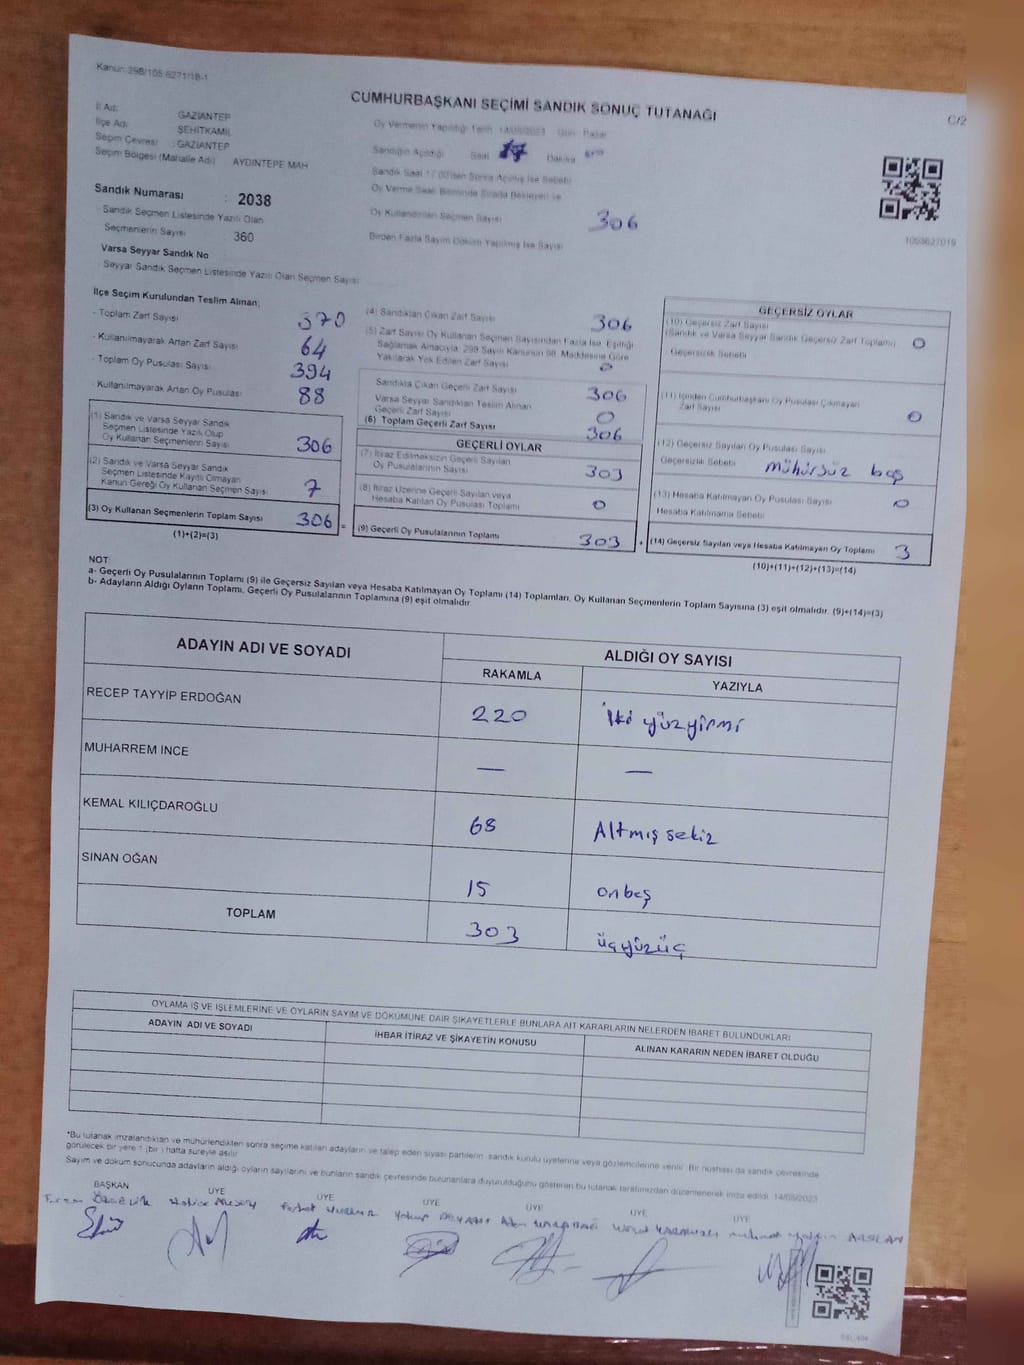 Kanun: 298/105 6271/18-1
CUMHURBAŞKANI SEÇİMİ SANDIK SONUÇ TUTANAĞI
C/2
İl Adı: GAZİANTEP
İlçe Adı ŞEHİTKAMİL
Seçim Çevresi : GAZİANTEP
Seçim Bölgesi (Mahalle Adı) AYDINTEPE MAH
Oy Vermenin Yapıldığı Tarih 14/05/2023 Gün Pazar
Sandığın Açıldığı Saat 17 Dakika
Sandık Saat 17:00'den Sonra Açılmış İse Sebebi
Oy Verme Saati Bitiminde Sırada Bekleyen ve
Oy Kullandırılan Seçmen Sayısı 306
Birden Fazla Sayım Döküm Yapılmış İse Sayısı
1093627019
Sandık Numarası : 2038
Sandık Seçmen Listesinde Yazılı Olan
Seçmenlerin Sayısı : 360
Varsa Seyyar Sandık No
Seyyar Sandık Seçmen Listesinde Yazılı Olan Seçmen Sayısı
İlçe Seçim Kurulundan Teslim Alınan;
- Toplam Zarf Sayısı 370
- Kullanılmayarak Artan Zarf Sayısı 64
- Toplam Oy Pusulası Sayısı 394
- Kullanılmayarak Artan Oy Pusulası 88
(1) Sandık ve Varsa Seyyar Sandık
Seçmen Listesinde Yazılı Olup
Oy Kullanan Seçmenlerin Sayısı 306
(2) Sandık ve Varsa Seyyar Sandık
Seçmen Listesinde Kayıtlı Olmayan
Kanun Gereği Oy Kullanan Seçmen Sayısı 7
(3) Oy Kullanan Seçmenlerin Toplam Sayısı 306 =
(1)+(2)=(3)
(4) Sandıktan Çıkan Zarf Sayısı 306
(5) Zarf Sayısı Oy Kullanan Seçmen Sayısından Fazla İse, Eşitliği
Sağlamak Amacıyla, 298 Sayılı Kanunun 98. Maddesine Göre
Yakılarak Yok Edilen Zarf Sayısı 0
Sandıkta Çıkan Geçerli Zarf Sayısı 306
Varsa Seyyar Sandıktan Teslim Alınan
Geçerli Zarf Sayısı 0
(6) Toplam Geçerli Zarf Sayısı 306
GEÇERLİ OYLAR
(7) İtiraz Edilmeksizin Geçerli Sayılan
Oy Pusulalarının Sayısı 303
(8) İtiraz Üzerine Geçerli Sayılan veya
Hesaba Katılan Oy Pusulası Toplamı 0
(9) Geçerli Oy Pusulalarının Toplamı 303 +
GEÇERSİZ OYLAR
(10) Geçersiz Zarf Sayısı
(Sandık ve Varsa Seyyar Sandık Geçersiz Zarf Toplamı) 0
Geçersizlik Sebebi
(11) İçinden Cumhurbaşkanı Oy Pusulası Çıkmayan
Zarf Sayısı 0
(12) Geçersiz Sayılan Oy Pusulası Sayısı
Geçersizlik Sebebi mühürsüz boş
(13) Hesaba Katılmayan Oy Pusulası Sayısı 0
Hesaba Katılmama Sebebi
(14) Geçersiz Sayılan veya Hesaba Katılmayan Oy Toplamı 3
(10)+(11)+(12)+(13)=(14)
NOT:
a- Geçerli Oy Pusulalarının Toplamı (9) ile Geçersiz Sayılan veya Hesaba Katılmayan Oy Toplamı (14) Toplamları, Oy Kullanan Seçmenlerin Toplam Sayısına (3) eşit olmalıdır. (9)+(14)=(3)
b- Adayların Aldığı Oyların Toplamı, Geçerli Oy Pusulalarının Toplamına (9) eşit olmalıdır
ADAYIN ADI VE SOYADI
ALDIĞI OY SAYISI
RAKAMLA YAZIYLA
RECEP TAYYİP ERDOĞAN 220 İki yüzyirmi
MUHARREM İNCE — —
KEMAL KILIÇDAROĞLU 68 Altmış sekiz
SİNAN OĞAN 15 onbeş
TOPLAM 303 üçyüzüç
OYLAMA İŞ VE İŞLEMLERİNE VE OYLARIN SAYIM VE DÖKÜMÜNE DAİR ŞİKAYETLERLE BUNLARA AİT KARARLARIN NELERDEN İBARET BULUNDUKLARI
ADAYIN ADI VE SOYADI İHBAR İTİRAZ VE ŞİKAYETİN KONUSU ALINAN KARARIN NEDEN İBARET OLDUĞU
*Bu tutanak imzalandıktan ve mühürlendikten sonra seçime katılan adayların ve talep eden siyasi partilerin sandık kurulu üyelerine veya gözlemcilerine verilir. Bir nüshası da sandık çevresinde
görülecek bir yere 1 (bir) hafta süreyle asılır
Sayım ve döküm sonucunda adayların aldığı oyların sayılarını ve bunların sandık çevresinde bulunanlara duyurulduğunu gösteren bu tutanak tarafımızdan düzenlenerek imza edildi. 14/05/2023
BAŞKAN ÜYE ÜYE ÜYE ÜYE ÜYE ÜYE
ARSLAN